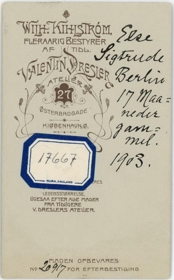 WILH. KIHLSTRØM,
FLERAARIG BESTYRER
AF TIDL.
VALENTIN DRESLER
ATELIER
27
ØSTERBROGADE
KJØBENHAVN.
Else
Sigtrude
Berlin
17 Maa-
neder
gam-
mel.
1903.
17667
OGSAA EFTER ÆLDRE PLADER
FRA TIDLIGERE
V. DRESLERS ATELIER.
PLADEN OPBEVARES
No 20917 FOR EFTERBESTILLING